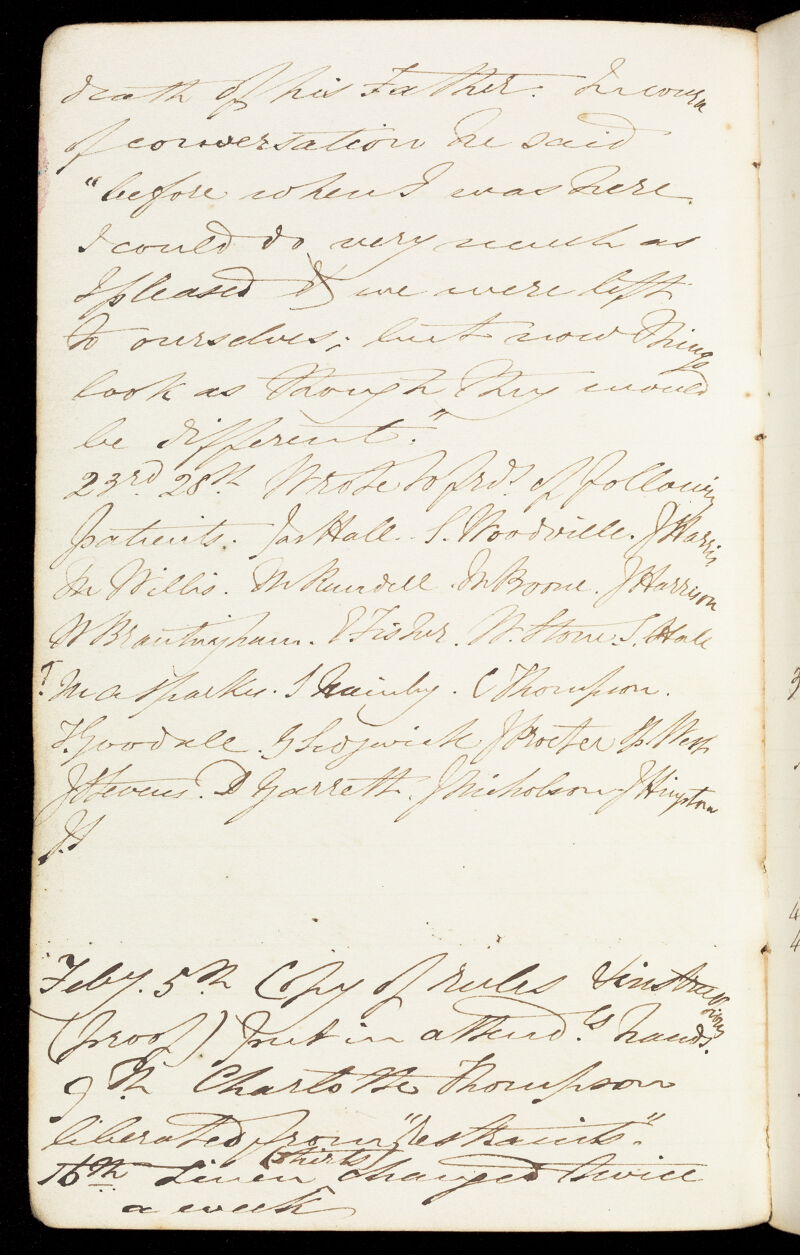 death of his Father. In cours
of conversation he said
"before when I was here
I could do very much as
I pleased & we were left
to ourselves; but now things
look as though they would
be different."
23rd 28th Wrote to frds of following
patients. Jas Hall. S. Woodville. J Harris
M Willis. M Rundell. M Boone. J Harrison
W Brantingham. E Fisher. W. Stone. S. Hall
M A Sparkes. S . C Thompson.
T. Goodale. G Sedgwick J Procter H. West
J Stevens. D Garrett. J Nicholson J Hingston
Feby. 5th Copy of rules & instructions
(proof) put in attend.ts hands.
9th Charlotte Thompson
liberated from "restraints".
16th Linen (shirts) changed twice
a week